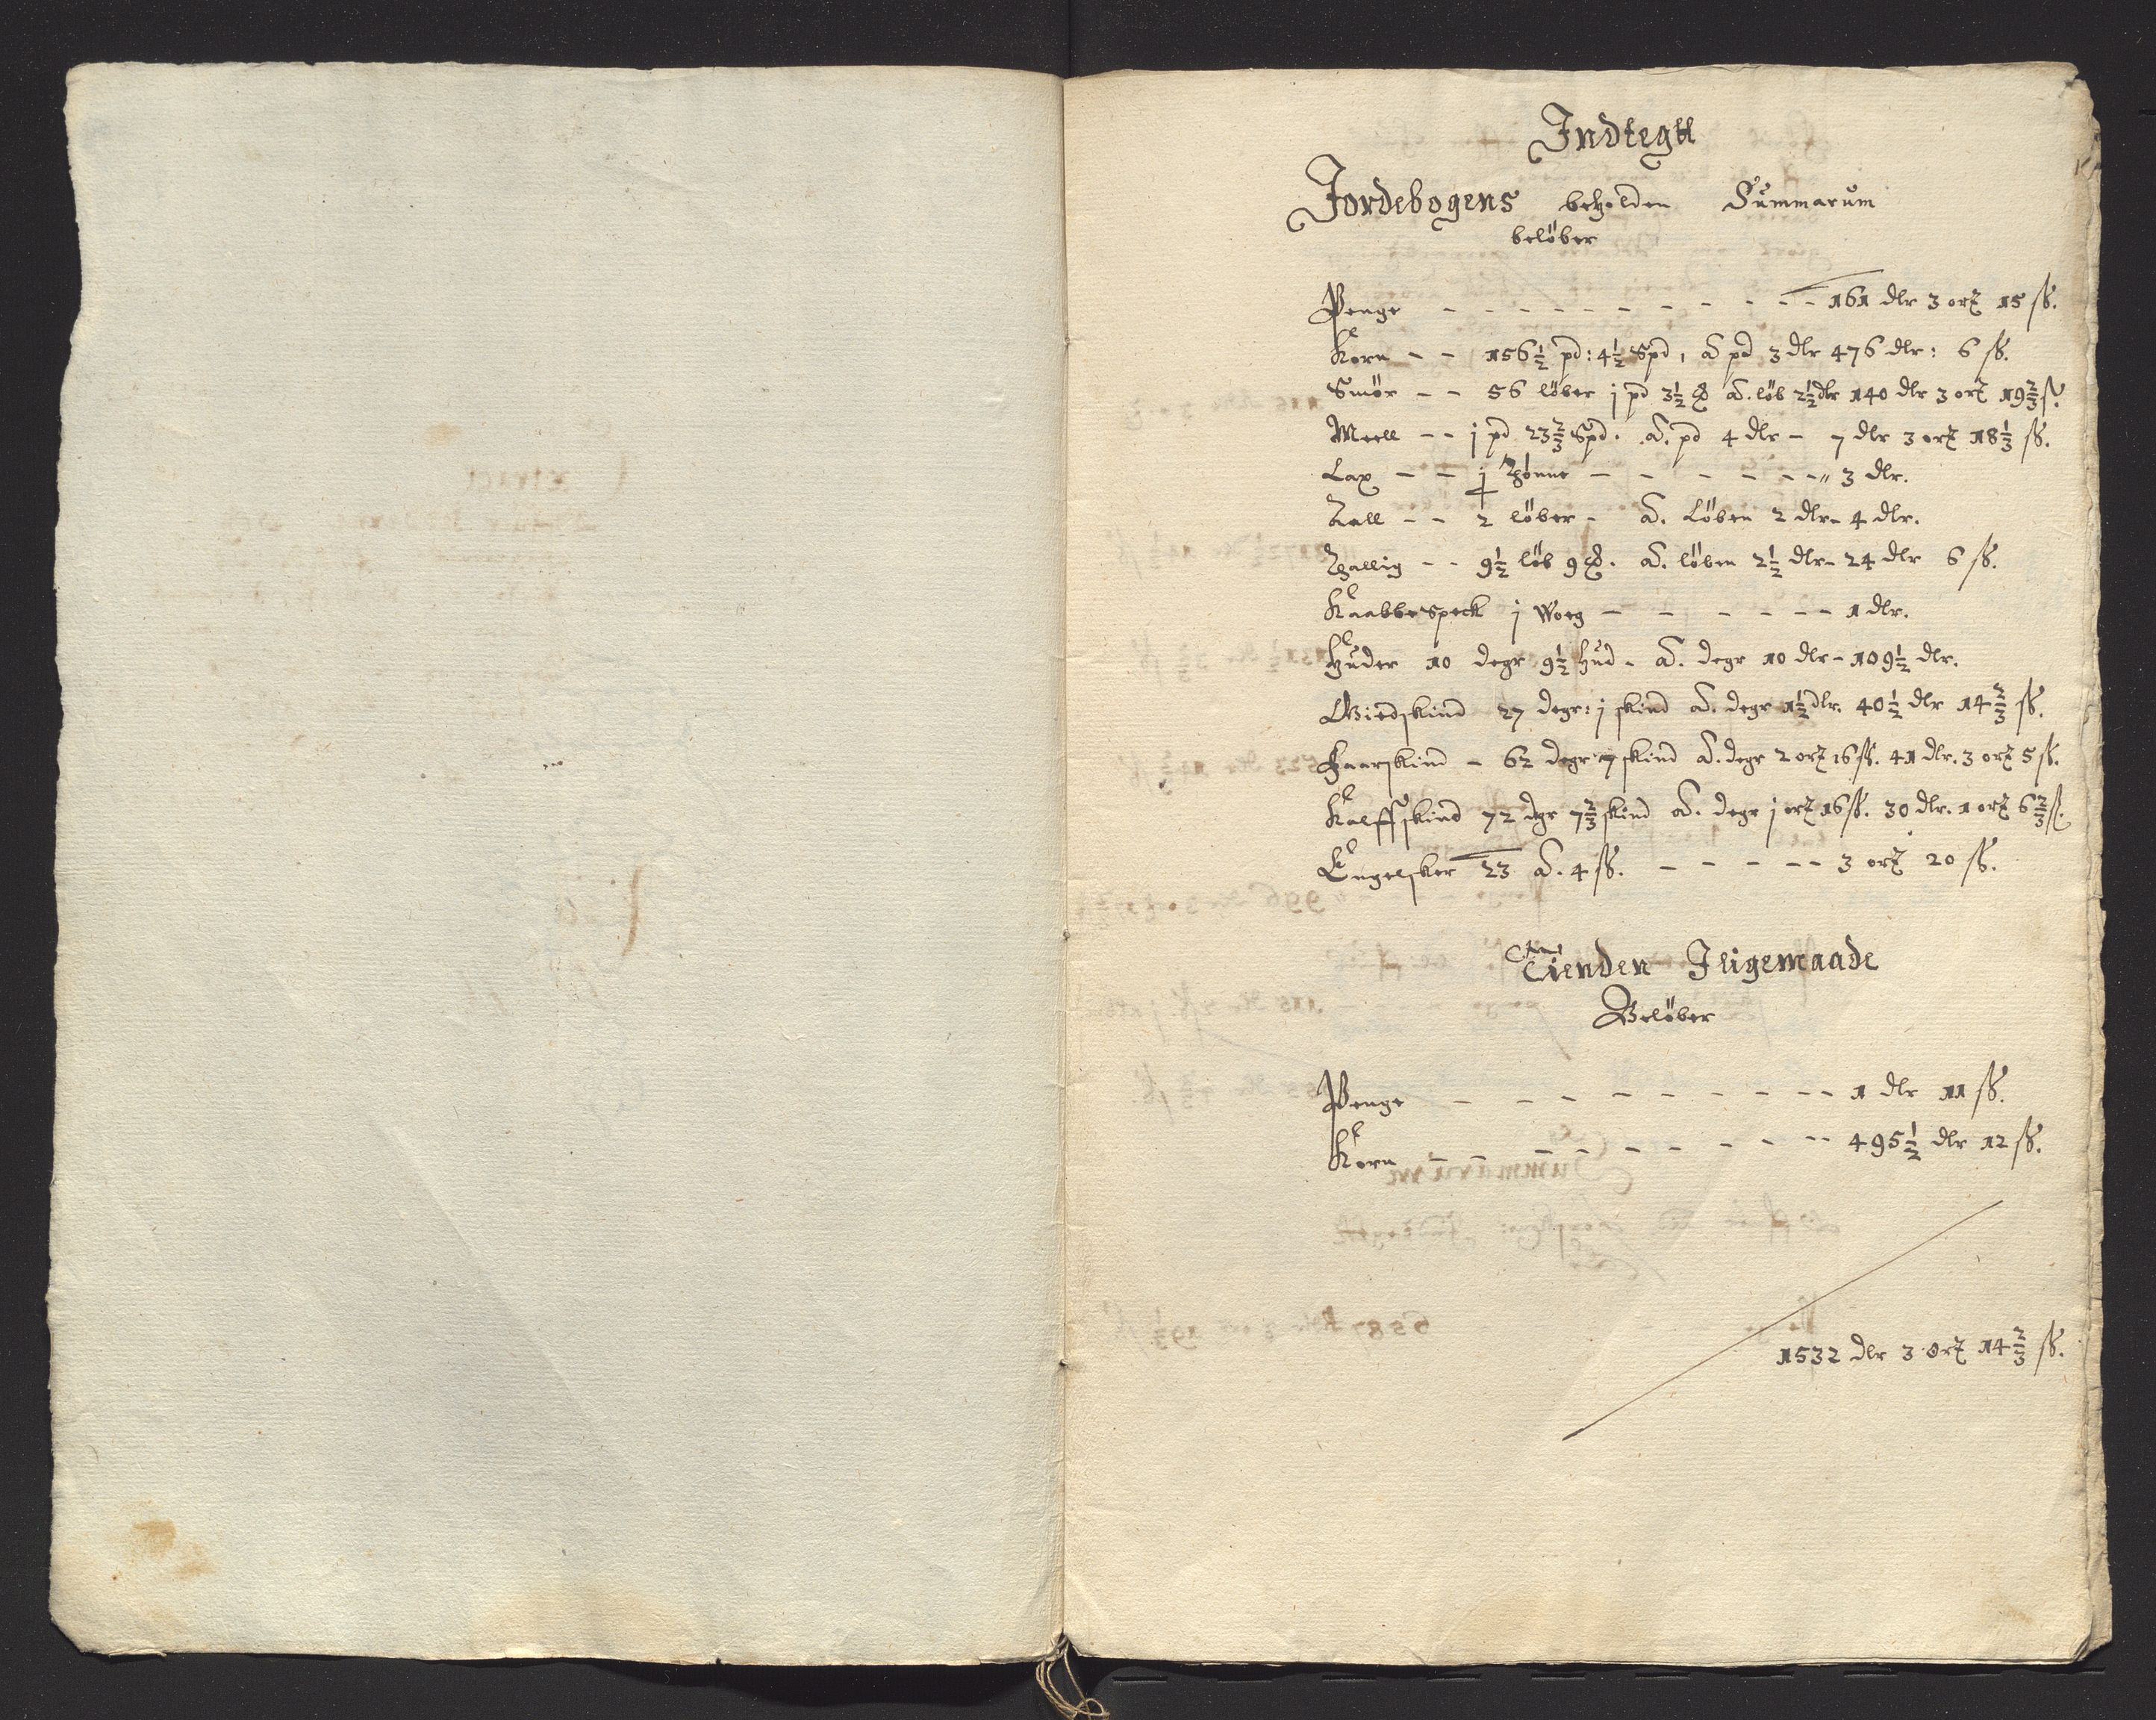 Indtegtt
Jordebogens beholden Summarum
beløber
Penge - - - - - - - - - 161 dlr 3 ort 15 ß.
Korn - - 156½ pd: 4½ Spd, a pd 3 dlr 476 dlr: 6 ß.
Smør - - 56 løber j pd 3½ ℔ a. løb 2½ dlr 140 dlr 3 ort 19⅔ ß.
Meell - - j pd 23⅔ Spd. a. pd 4 dlr - 7 dlr 3 ort 18⅓ ß.
Lax - - j Thønne - - - - - - „ 3 dlr.
Tall - - 2 løber - a. Løben 2 dlr - 4 dlr.
Thallig - - 9½ løb 9 ℔. a. løben 2½ dlr - 24 dlr 6 ß.
Kaabbespeck j Woeg - - - - - - 1 dlr.
Huder 10 degr 9½ hud - a. degr 10 dlr - 109½ dlr.
Giedskind 27 degr: j skind a. degr 1½ dlr. 40½ dlr 14⅔ ß.
Faarskind - 62 degr 7 skind a. degr 2 ort 16 ß. 41 dlr. 3 ort 5 ß.
Kalffskind 72 dgr 7⅔ skind a. degr j ort 16 ß. 30 dlr. 1 ort 6⅔ ß.
Engelsker 23 a. 4 ß. - - - - - 3 ort 20 ß.
Tienden Iligemaade
Beløber
Penge - - - - - - - - - 1 dlr 11 ß.
Korn - - - - - - - - - 495½ dlr 12 ß.
1532 dlr 3 Ort 14⅔ ß.